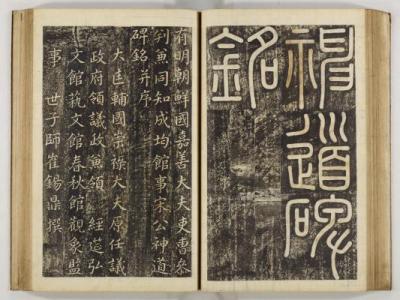 神道碑
銘
有明朝鮮國嘉善大夫吏曹參
判兼同知成均館事宋公神道
碑銘并序
大匡輔國崇祿大夫原任議
政府領議政兼領 經筵弘
文館藝文館春秋館觀象監
事 世子師崔錫鼎撰